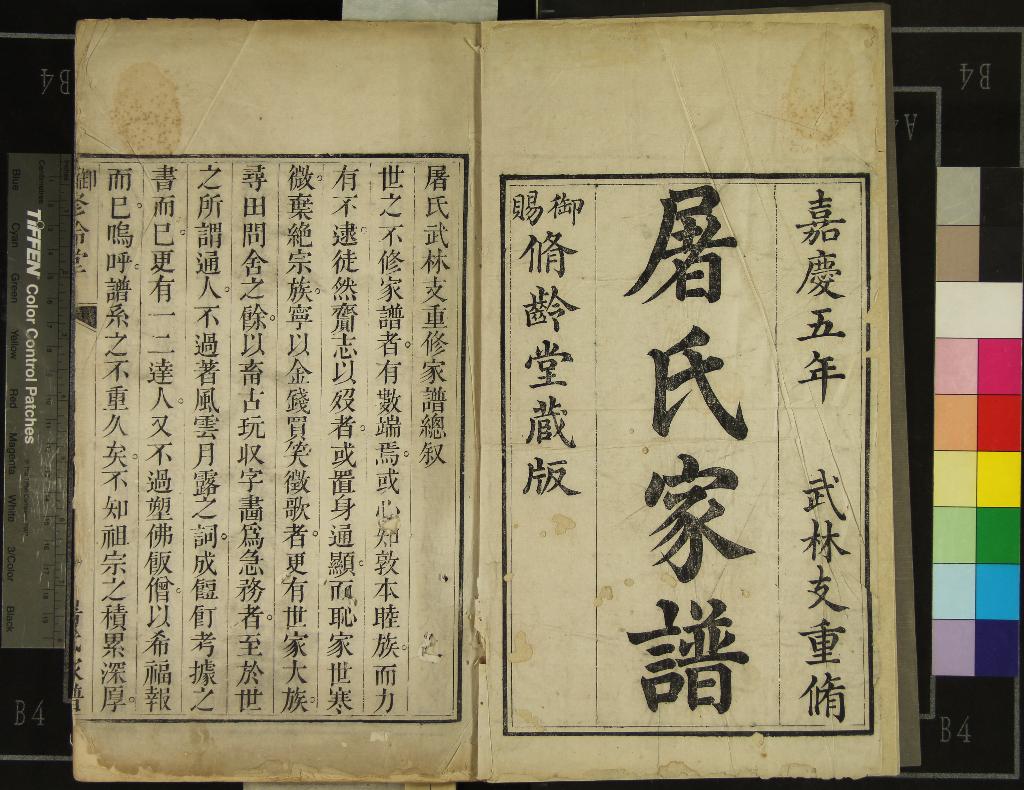 嘉慶五年　武林支重脩
屠氏家譜
御賜脩齡堂藏版
屠氏武林支重修家譜總叙
世之不修家譜者有數端焉或心知敦本睦族而力
有不逮徒然齎志以歿者或置身通顯而恥家世寒
微棄絶宗族寧以金錢買笑徵歌者更有世家大族
尋田問舍之餘以畜古玩収字畵爲急務者至於世
之所謂通人不過著風雲月露之詞成餖飣考據之
書而已更有一二達人又不過塑佛飯僧以希福報
而已嗚呼譜系之不重久矣不知祖宗之積累深厚
TIFFEN Color Control Patches
Blue
Cyan
Green
Yellow
Red
Magenta
White
3/Color
Black
B4
B4
B4
B4